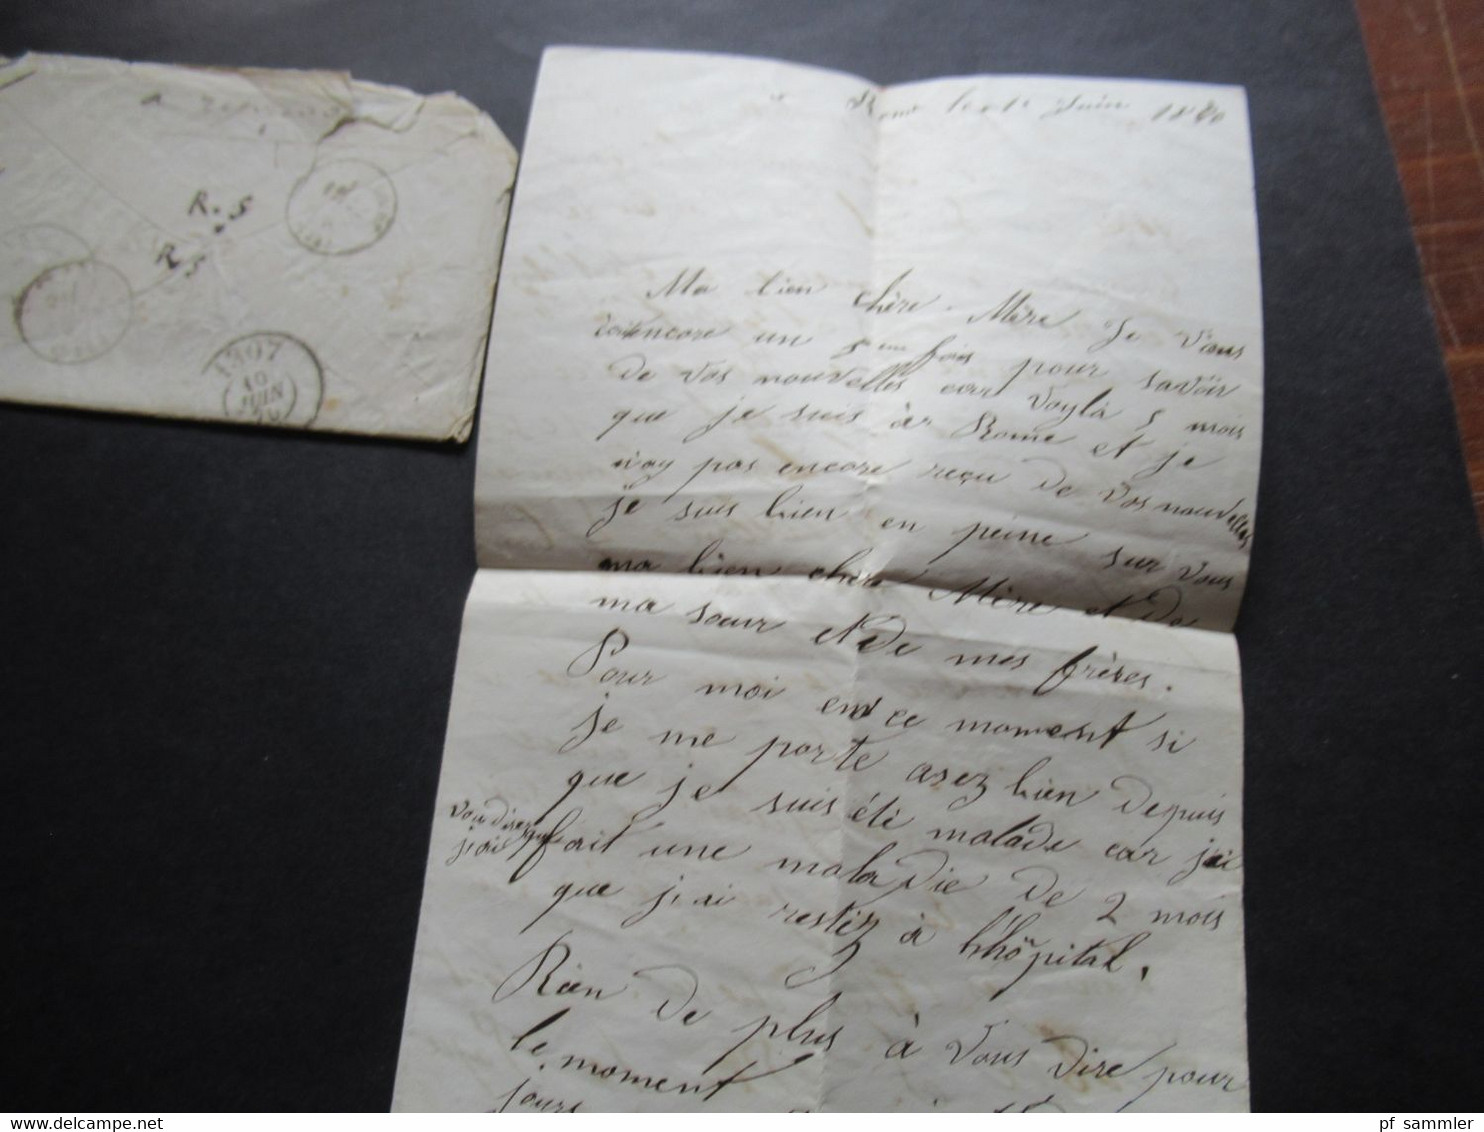 R. S
R S
1307
10
JUIN
70
Rome le 1r Juin 1870
Ma bien chère Mère Je Vous
encore un 5eme fois pour savoir
de vos nouvelles car Voyla 5 mois
que je suis à Rome et je
n'ay pas encore reçu de Vos nouvelles
je suis bien en peine sur Vous
ma bien chère Mère et de
ma soeur et de mes frères.
Pour moi en ce moment si
je me porte asez bien depuis
que je suis été malade car j'ai
vou dire que j'ai
fait une maladie de 2 mois
que j'ai restéz à l'hôpital.
Rien de plus à Vous dire pour
le moment
jours
pf sammler